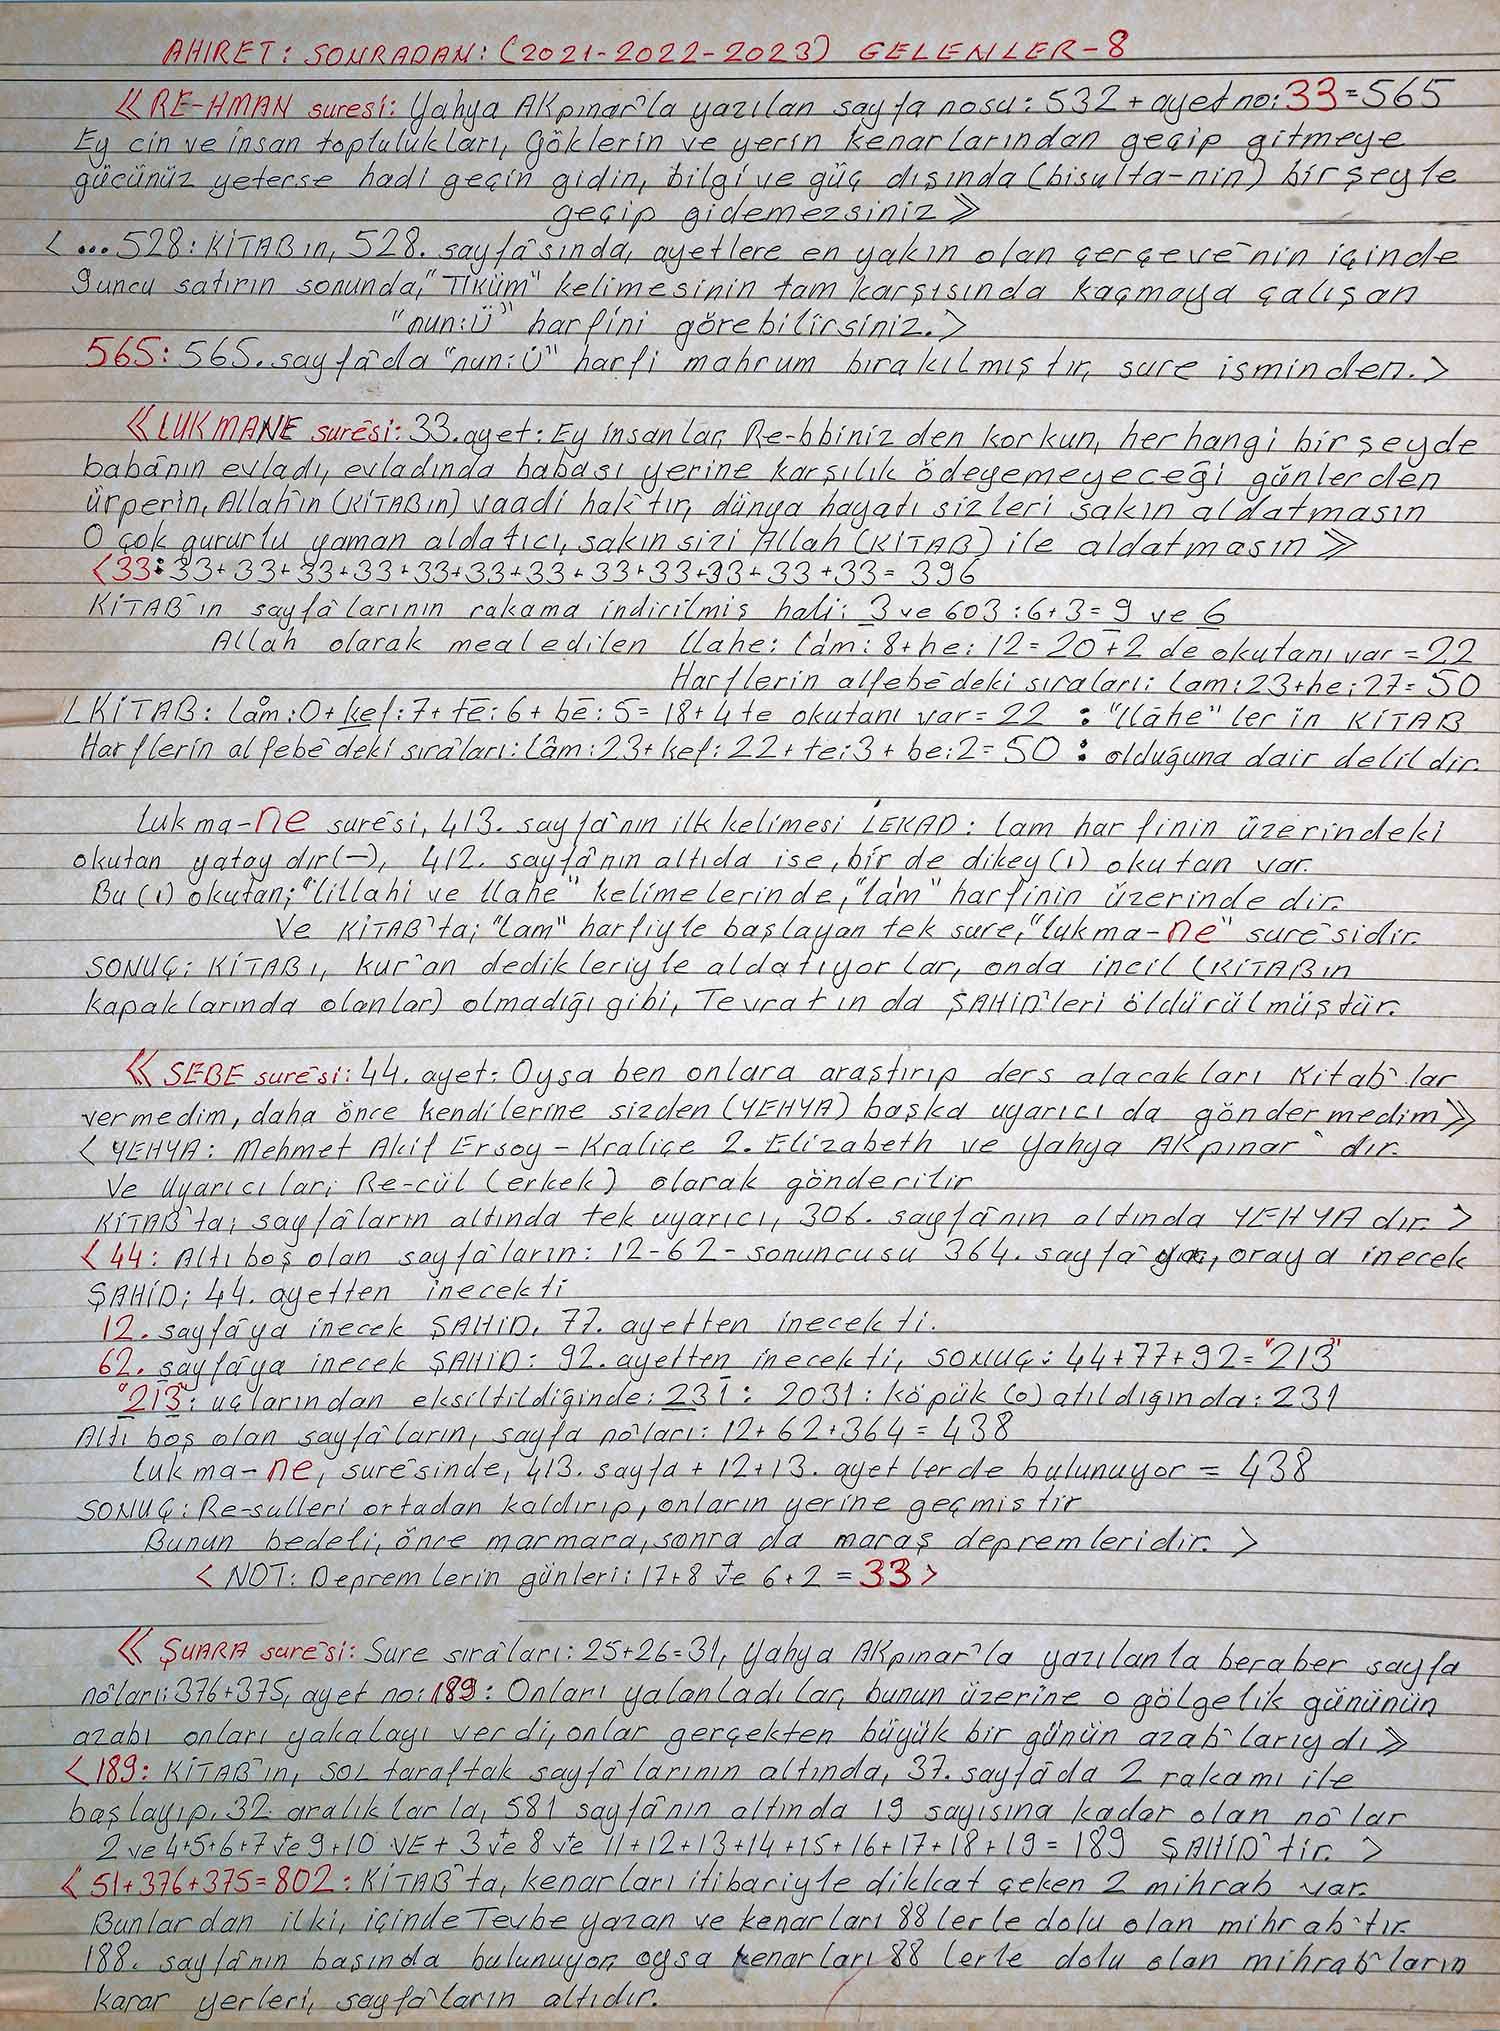 AHIRET: SONRADAN: (2021-2022-2023) GELENLER-8
《RE-HMAN suresi: Yahya AKpınar'la yazılan sayfa nosu: 532 + ayet no: 33 = 565
Ey cin ve insan toplulukları, göklerin ve yerin kenarlarından geçip gitmeye
gücünüz yeterse hadi geçin gidin, bilgi ve güç dışında (bisulta-nin) birşeyle
geçip gidemezsiniz》
< ... 528: KİTABın, 528. sayfâsında, ayetlere en yakın olan çerçevênin içinde
9uncu satırın sonunda; "TİKÜM" kelimesinin tam karşısında kaçmaya çalışan
"nun:Ü" harfini görebilirsiniz.>
565: 565. sayfâda "nun:Ü" harfi mahrum bırakılmıştır, sure isminden.>
《LUKMANE surêsi: 33. ayet: Ey insanlar, Re-bbinizden korkun, herhangi birşeyde
babânın evladı, evladında babası yerine karşılık ödeyemeyeceği günlerden
ürperin, Allah'ın (KİTABın) vaadi hak'tır, dünya hayatı sizleri sakın aldatmasın
O çok gururlu yaman aldatıcı, sakın sizi Allah (KİTAB) ile aldatmasın》
<33: 33+33+33+33+33+33+33+33+33+33+33+33= 396
KİTAB'ın sayfâlarının rakama indirilmiş hali: 3 ve 603: 6+3= 9 ve 6
Allah olarak mealedilen llahe: lâm: 8+he: 12=20+2 de okutanı var = 22
Harflerin alfebêdeki sıraları: Lam:23+he:27=50
LKİTAB: lâm:0+kef:7+tê:6+bê:5=18+4te okutanı var= 22 : "llâhe"ler'in KİTAB
Harflerin alfebêdeki sırâları: Lâm:23+kef:22+te:3+be:2=50 : olduğuna dair delildir.
Lukma-ne surêsi, 413. sayfânın ilk kelimesi LEKAD: lam harfinin üzerindeki
okutan yatay dır(—), 412. sayfânın altıda ise, bir de dikey (ı) okutan var.
Bu (ı) okutan; "lillahi ve llahe" kelimelerinde, "lâm" harfinin üzerinde dir.
Ve KİTAB'ta; "lam" harfiyle başlayan tek sure, "lukma-ne" surêsidir.
SONUÇ: KİTABı, kur'an dedikleriyle aldatıyorlar, onda incil (KİTABın
kapaklarında olanlar) olmadığı gibi, Tevrat'ın da ŞAHİD'leri öldürülmüştür.
《SEBE surêsi: 44. ayet: Oysa ben onlara araştırıp ders alacakları Kitab'lar
vermedim, daha önce kendilerine sizden (YEHYA) başka uyarıcı da göndermedim》
< YEHYA: Mehmet Akif Ersoy - Kraliçe 2. Elizabeth ve Yahya AKpınar' dır.
Ve Uyarıcılar; Re-cül (erkek) olarak gönderilir
KİTAB'ta; sayfâların altında tek uyarıcı, 306. sayfânın altında YEHYA dır. >
< 44: Altı boş olan sayfâların: 12-62- sonuncusu 364. sayfâ'ya, oraya inecek
ŞAHİD; 44. ayetten inecekti
12. sayfâya inecek ŞAHİD, 77. ayetten inecekti.
62. sayfâya inecek ŞAHİD: 92. ayetten inecekti, SONUÇ: 44+77+92="213"
"213": uçlarından eksiltildiğinde: 231: 2031: köpük (o) atıldığında: 231
Altı boş olan sayfâların, sayfa nôları: 12+62+364 = 438
Lukma-ne, surêsinde, 413. sayfa + 12+13. ayetlerde bulunuyor = 438
SONUÇ: Re-sulleri ortadan kaldırıp, onların yerine geçmiştir
Bunun bedeli, önce marmara, sonra da maraş depremleridir. >
< NOT: Depremlerin günleri: 17+8 ve 6+2 = 33 >
《ŞUARA surêsi: Sure sırâları: 25+26=31, Yahya AKpınar'la yazılanla beraber sayfa
nôları: 376+375, ayet no: 189: Onları yalanladılar, bunun üzerine o gölgelik gününün
azabı onları yakalayı verdi, onlar gerçekten büyük bir günün azab'larıydı》
<189: KİTAB'ın, SOL taraftak sayfâlarının altında, 37. sayfâda 2 rakamı ile
başlayıp, 32 aralıklarla, 581 sayfânın altında 19 sayısına kadar olan nô'lar
2 ve 4+5+6+7 ve 9+10 VE + 3 ve 8 ve 11+12+13+14+15+16+17+18+19=189 ŞAHİD'tir. >
<51+376+375=802: KİTAB'ta, kenarları itibariyle dikkat çeken 2 mihrab var.
Bunlardan ilki, içinde Tevbe yazan ve kenarları 88lerle dolu olan mihrab'tır
188. sayfânın başında bulunuyor, oysa kenarları 88 lerle dolu olan mihrab'ların
karar yerleri, sayfâ'ların altıdır.